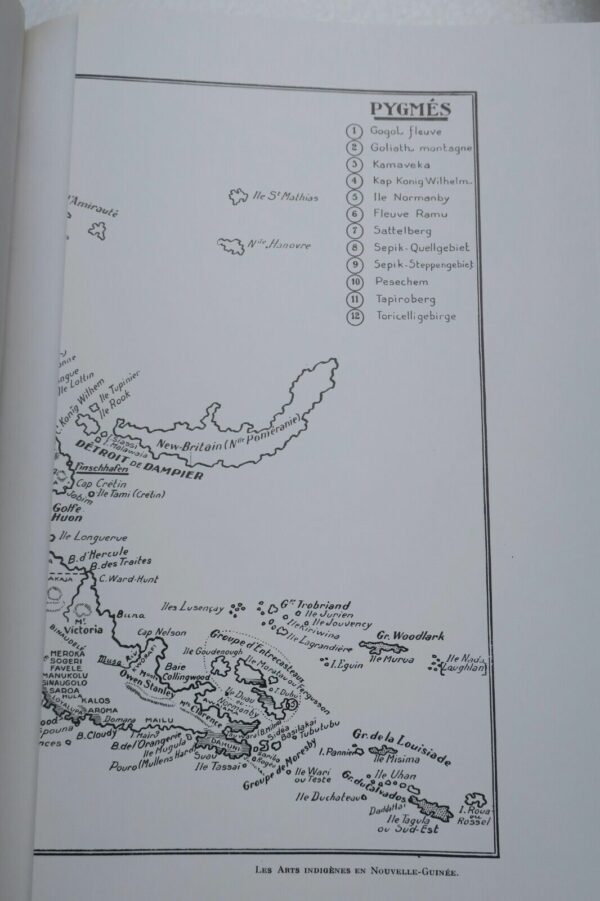 PYGMÉS
1 Gogol, fleuve
2 Goliath, montagne
3 Kamaveka
4 Kap Konig Wilhelm
5 Ile Normanby
6 Fleuve Ramu
7 Sattelberg
8 Sepik-Quellgebiet
9 Sepik-Steppengebiet
10 Pesechem
11 Tapiroberg
12 Toricelligebirge
Ile St Mathias
d'Amirauté
Nlle Hanovre
Ile Lottin
Ile Tupinier
C. König Wilhem
Ile Rook
I. Siassi
I. Malawaia
New-Britain (Nlle Poméranie)
DÉTROIT DE DAMPIER
Finschhafen
Cap Crétin
Jabim
Ile Tami (Crétin)
Golfe
Huon
Ile Longuerue
B. d'Hercule
B. des Traites
C. Ward-Hunt
Buna
Mt
Victoria
Cap Nelson
Musa
Baie
Collingwood
Owen Stanley
BINANDELÉ
MEROKA
SOGERI
FAVELE
MANUKOLU
SINAUGOLO
SAROA
HULA
KALOS
AROMA
Domara
MAILU
B. Cloudy
Iles Lusençay
Gpe Trobriand
Ile Jurien
Ile Jouvency
Ile Kiriwina
Ile Lagrandière
Gr. Woodlark
Ile Murua
Ile Nada
(Laughlan)
I. Eguin
Groupe d'Entrecasteaux
Ile Goudenough
Ile Moratau ou Fergusson
I. Dubu
Ile Duau
ou
Normanby
Mts Clarence
B. Milne
Basilakai
Tubutubu
B. de l'Orangerie
Ile Mugula
Pouro (Mullens Harb.)
DAHUNI
Suau
Ile Tassai
Groupe de Moresby
Ile Wari
ou Teste
Ile Duchateau
Gr. de la Louisiade
I. Pannier
Ile Misima
Ile Uhan
Gr. du Calvados
Ile Tagula
ou Sud-Est
I. Roua
ou
Rossel
LES ARTS INDIGÈNES EN NOUVELLE-GUINÉE.